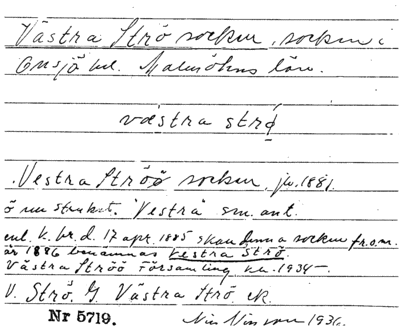 Västra Strö socken, socken i
Onsjö hd. Malmöhus län.
västra strö
Vestra Ströö socken, jb. 1881.
ö nu struket. "Vestra" sm. ant.
enl. k. br. d. 17 apr. 1885 skall denna socken fr.o.m.
år 1886 benämnas Vestra Strö.
Västra Ströö församling 1934
V. Strö. G. Västra Strö, ek.
Nr 5719. Nils Nilsson 1936.